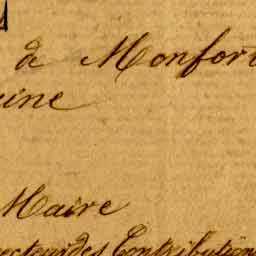 de Monfort
ine
Maire
recteur des Contribution